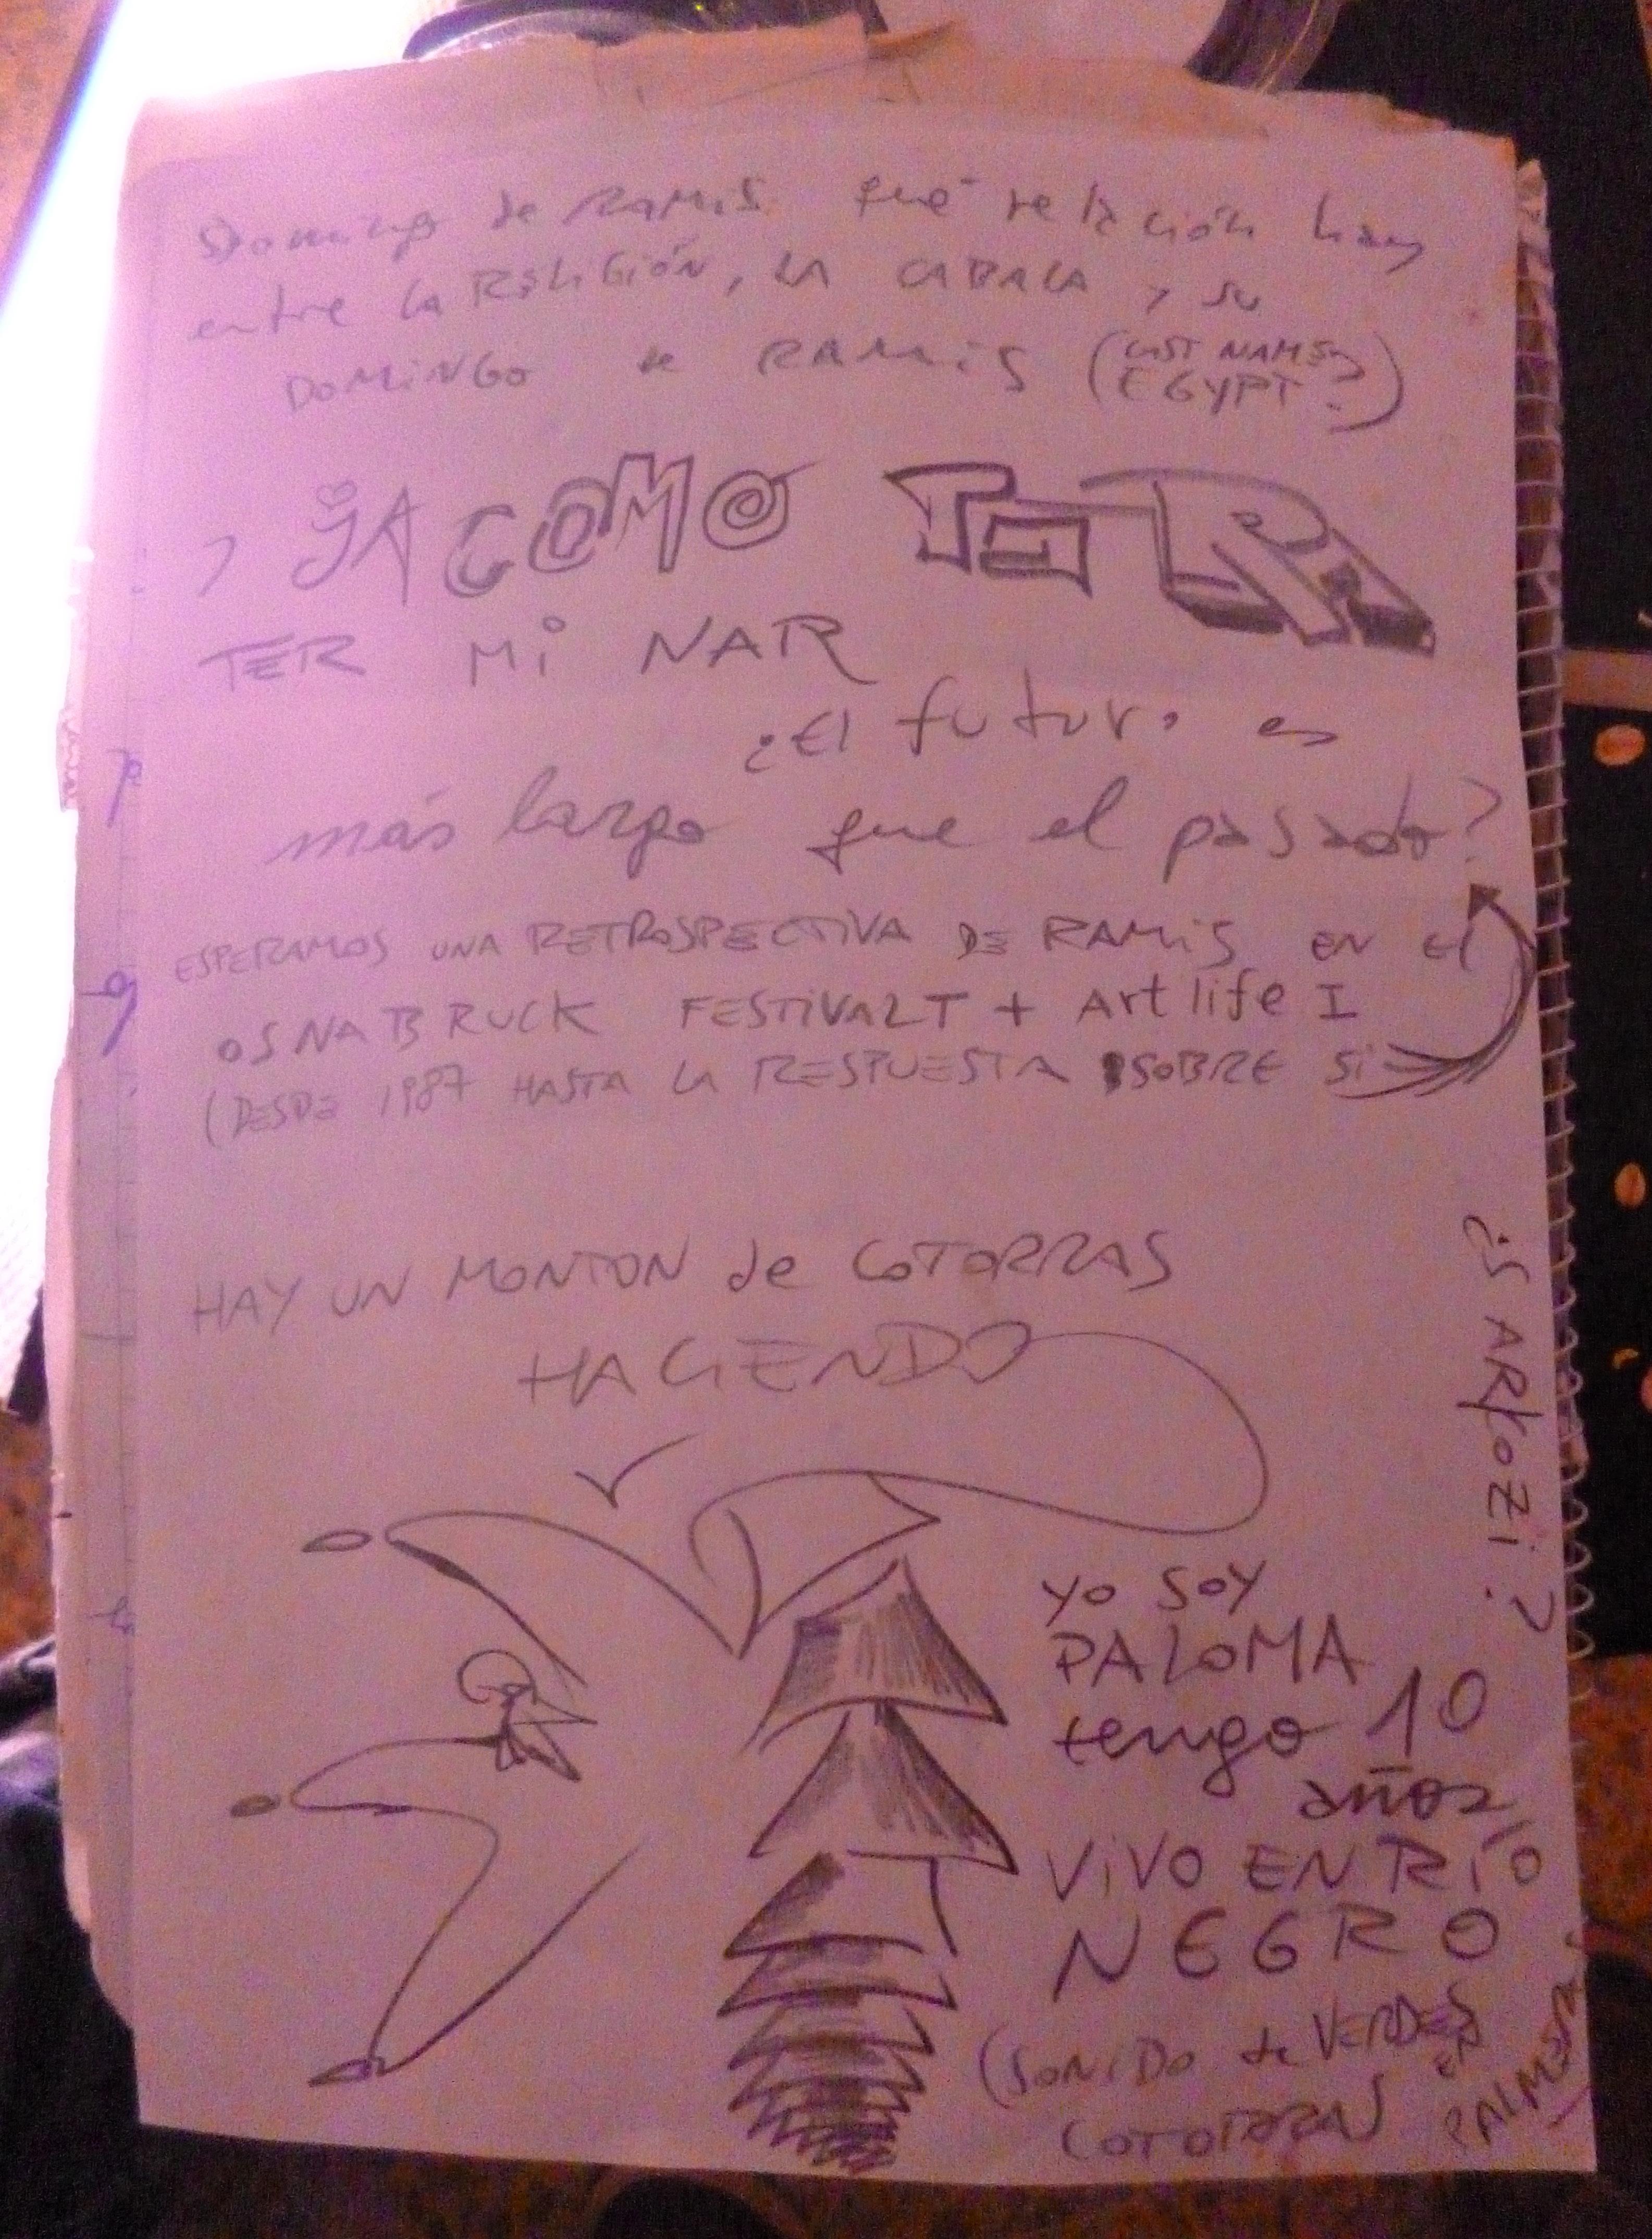 Domingo de RAMIS. qué relación hay
entre la RELIGIÓN, LA CABALA y su
DOMINGO de RAMIS (LAST NAME?
EGYPT?)
y YA COMO PARA
TER Mi NAR
¿El futuro es
más largo que el pasado?
ESPERAMOS UNA RETROSPECTIVA DE RAMIS EN El
OSNABRUCK FESTIVALT + Art life I
(DESDE 1987 HASTA LA RESPUESTA SOBRE Si
HAY UN MONTON de COTORRAS
HACIENDO
yo soy
PALOMA
tengo 10
años
VIVO EN RÍO
NEGRO
(SONIDO de VERDES
COTORRAS EN
PALMERA)